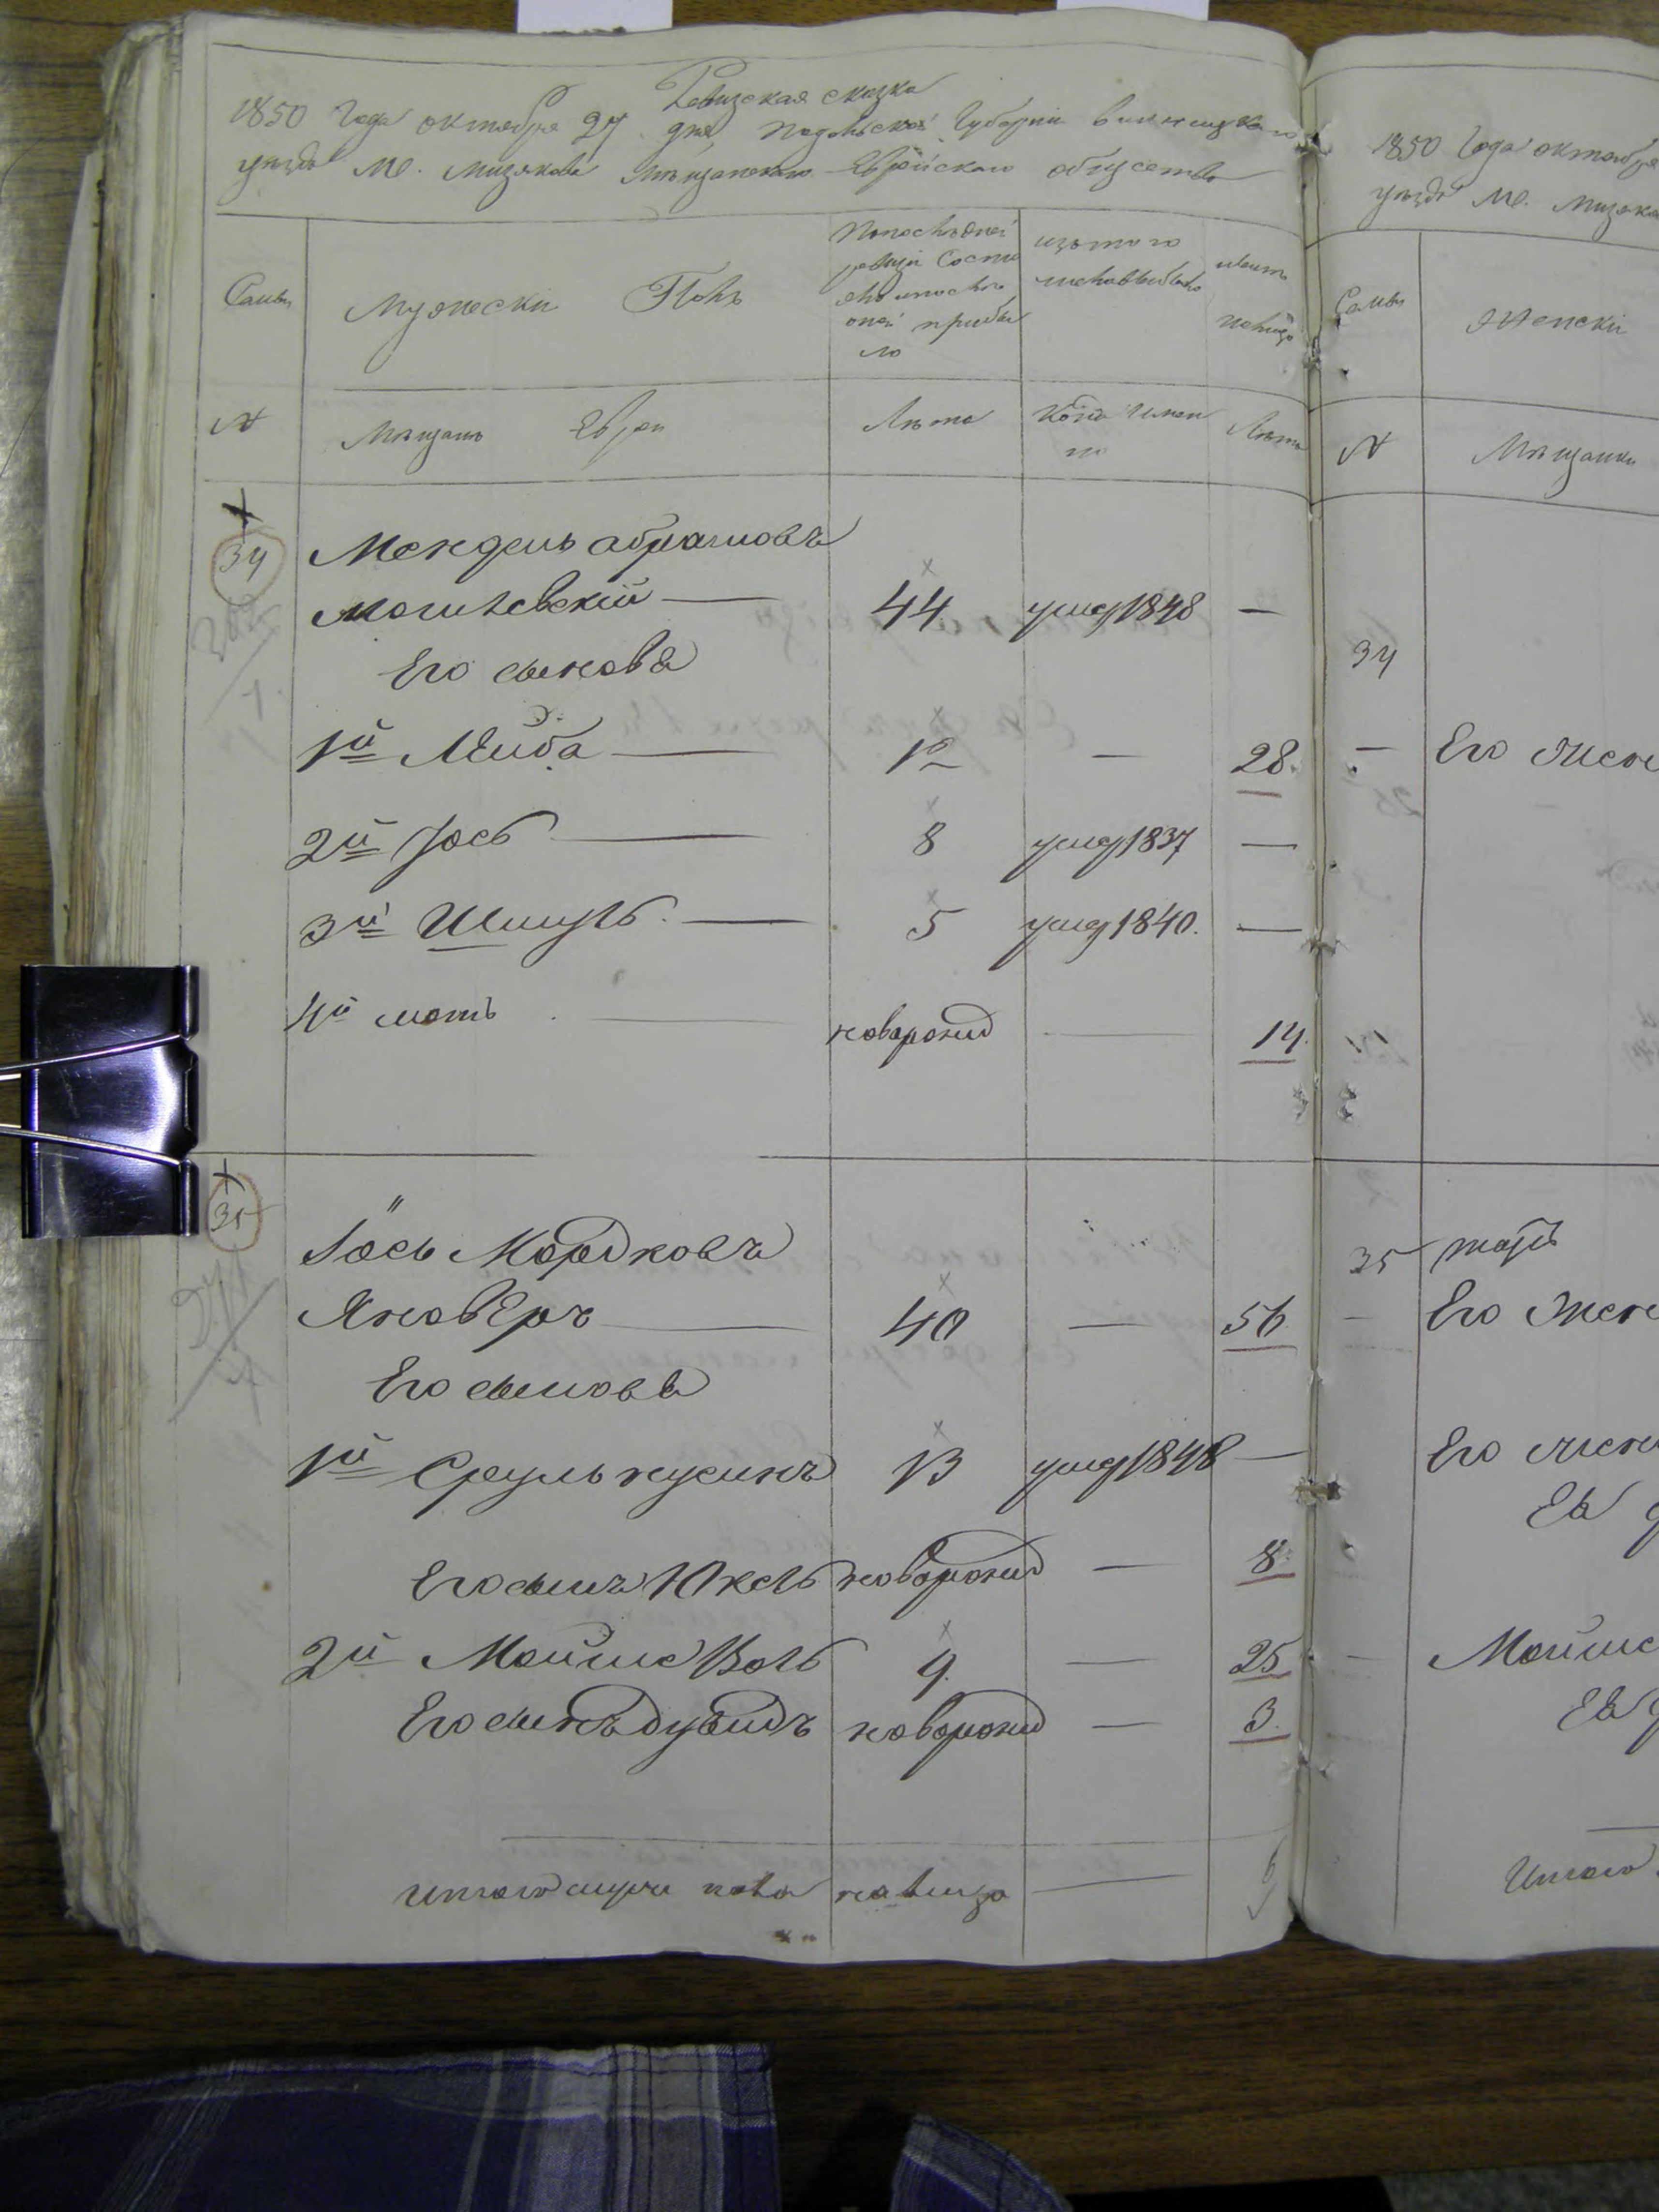 Ревизская сказка
1850 года октября 27 дня, Подольской Губернии Винницкаго
уезда М. Мизякова Мещанскаго Еврейскаго общества
Семьи
Мужески Полъ
По последней ревизи состояло и после оной прибыло
изъ того числа выбыло
ныне на лицо
№
Мещане Евреи
Лета
Когда имен но
Лета
34
Мендель Абрамовъ
Могилевскій — 44 умер 1848 —
Его сыновья
1й Лейба — 12 — 28.
2й Іось — 8 умер 1837 —
3й Шмуль — 5 умер 1840. —
4й Моть — новорожд — 14.
35
Іось Мордковъ
Яноверъ — 40 — 56
Его сыновья
1й Сруль Нусинъ 13 умер 1848 —
Его сынъ Юкель новорожд — 8.
2й Мойше Волъ 9. — 25
Его сынъ Дувидъ новорожд — 3.
Итого муже пола на лицо — 6
1850 года октября
уезда М. Мизяко
Семьи
Женски
№
Мещанки
34
— Его жен
35
— Его жен
Его жен
Ея
— Мойше
Ея
Итого